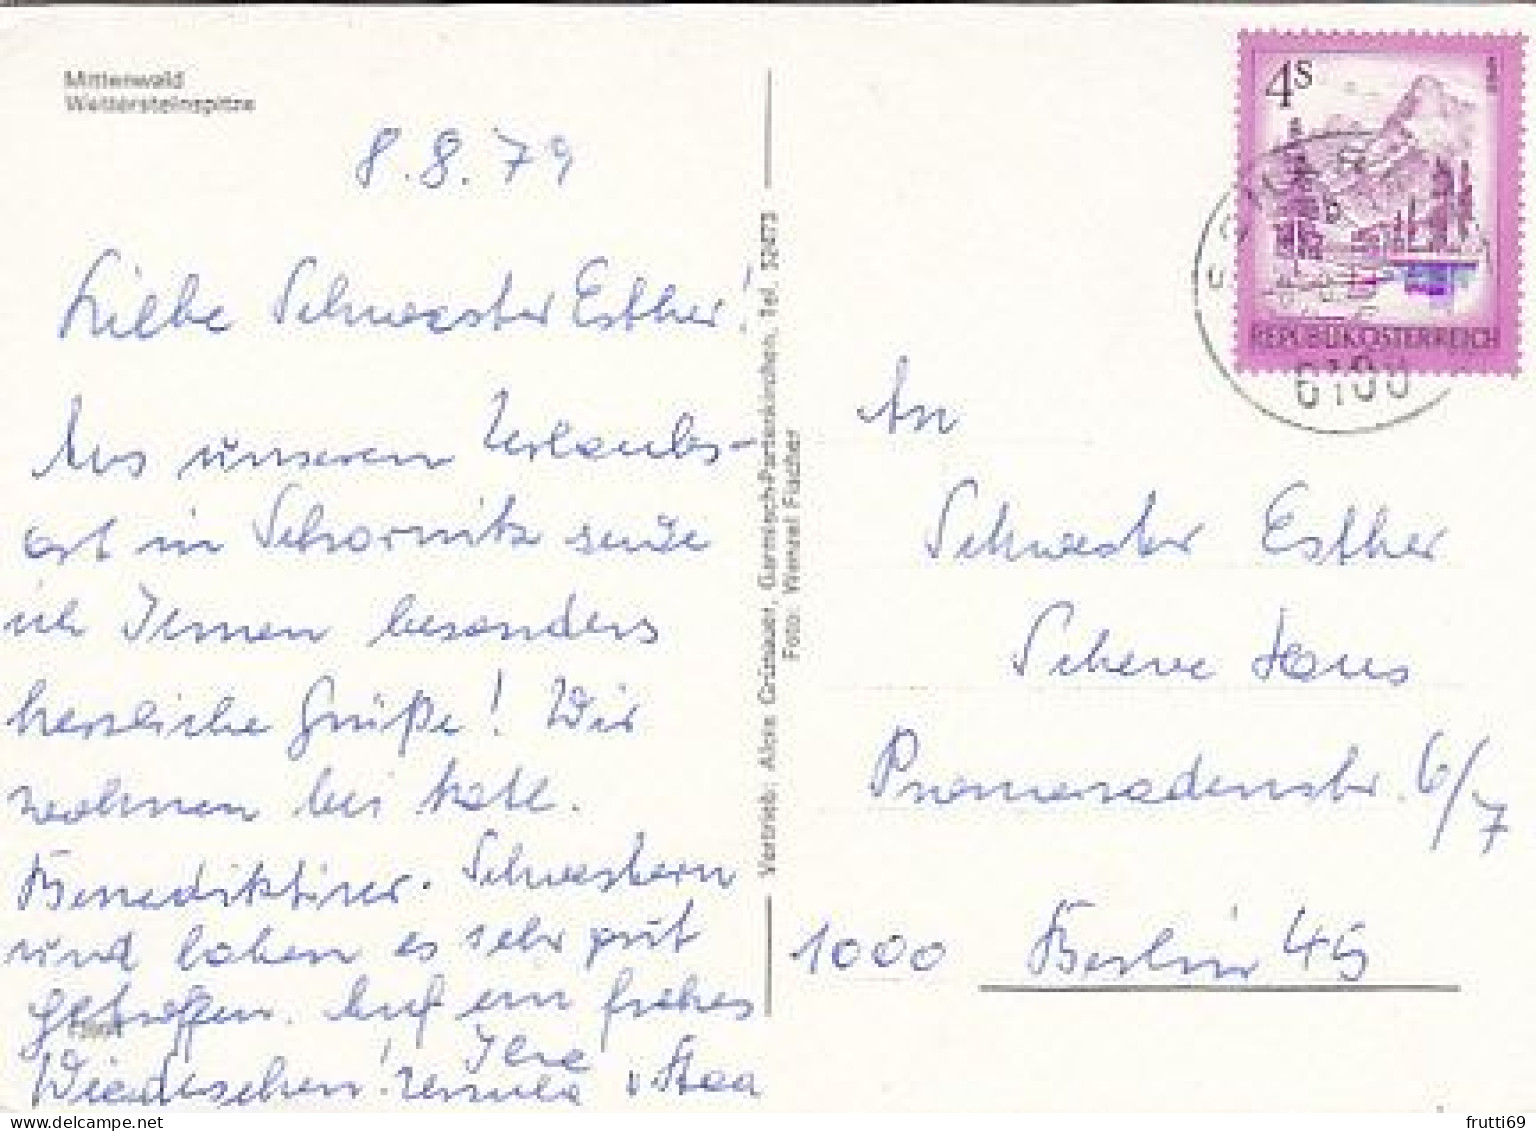 Mittenwald
Wettersteinspitze
8.8.79
Liebe Schwester Esther!
Aus unseren Urlaubs-
ort in Scharnitz sende
ich Ihnen besonders
herzliche Grüße! Wir
wohnen bei kath.
Benediktiner. Schwestern
und haben es sehr gut
getroffen. Auf ein frohes
Wiedersehen! Ihre
v. Staa
Vertrieb: Alois Grünauer, Garmisch-Partenkirchen, Tel. 52873
Foto: Wenzel Fischer
4S
REPUBLIK ÖSTERREICH
6100
An
Schwester Esther
Scheve Haus
Promenadenstr. 6/7
1000 Berlin 45
frutti69